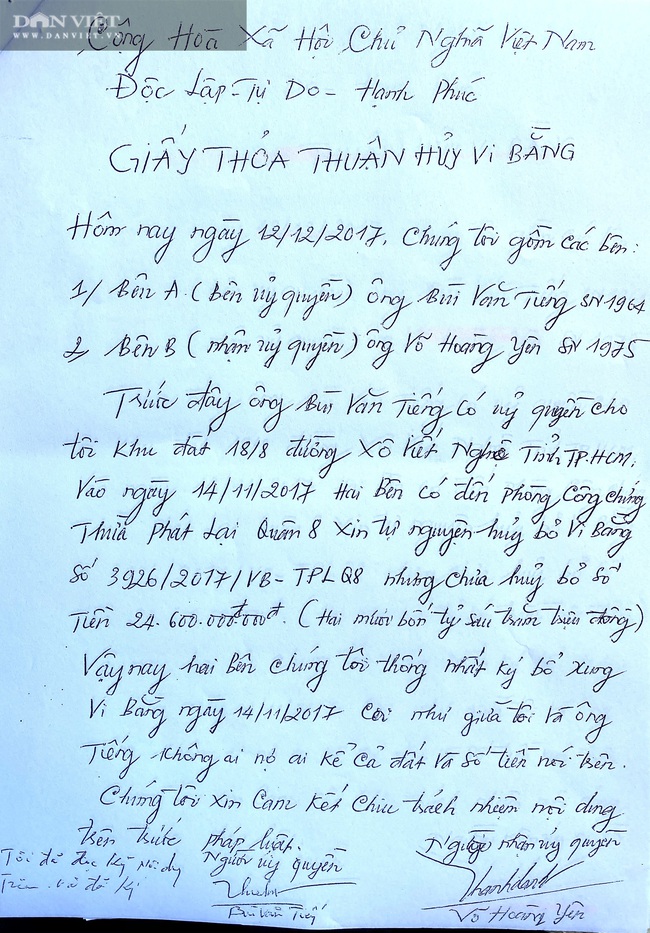 DÂN VIỆT
WWW.DANVIET.VN
Cộng Hoà Xã Hội Chủ Nghĩa Việt Nam
Độc Lập - Tự Do - Hạnh Phúc
GIẤY THỎA THUẬN HỦY Vi BẰNG
Hôm nay ngày 12/12/2017, Chúng tôi gồm các bên:
1/ Bên A (bên uỷ quyền) ông Bùi Văn Tiếng SN 1964
2/ Bên B (nhận uỷ quyền) ông Võ Hoàng Yên SN 1975
Trước đây ông Bùi Văn Tiếng có uỷ quyền cho
tôi khu đất 18/8 đường Xô Viết Nghệ Tỉnh TP.HCM.
Vào ngày 14/11/2017 Hai bên có đến phòng Công chứng
Thừa Phát Lại Quận 8 Xin tự nguyện hủy bỏ Vi Bằng
Số 3926/2017/VB-TPLQ8 nhưng chưa huỷ bỏ số
Tiền 24.600.000.000đ. (Hai mươi bốn tỷ sáu trăm triệu đồng)
Vậy nay hai bên chúng tôi thống nhất ký bổ xung
Vi Bằng ngày 14/11/2017 Coi như giữa tôi và ông
Tiếng không ai nợ ai kể cả đất và số tiền nói trên.
Chúng tôi xin Cam kết chịu trách nhiệm nội dung
trên trước pháp luật.
Tôi đã đọc kỹ nội dung
Trên và đã ký
Người uỷ quyền
Bùi Văn Tiếng
Người nhận uỷ quyền
Thanhdanh
Võ Hoàng Yên